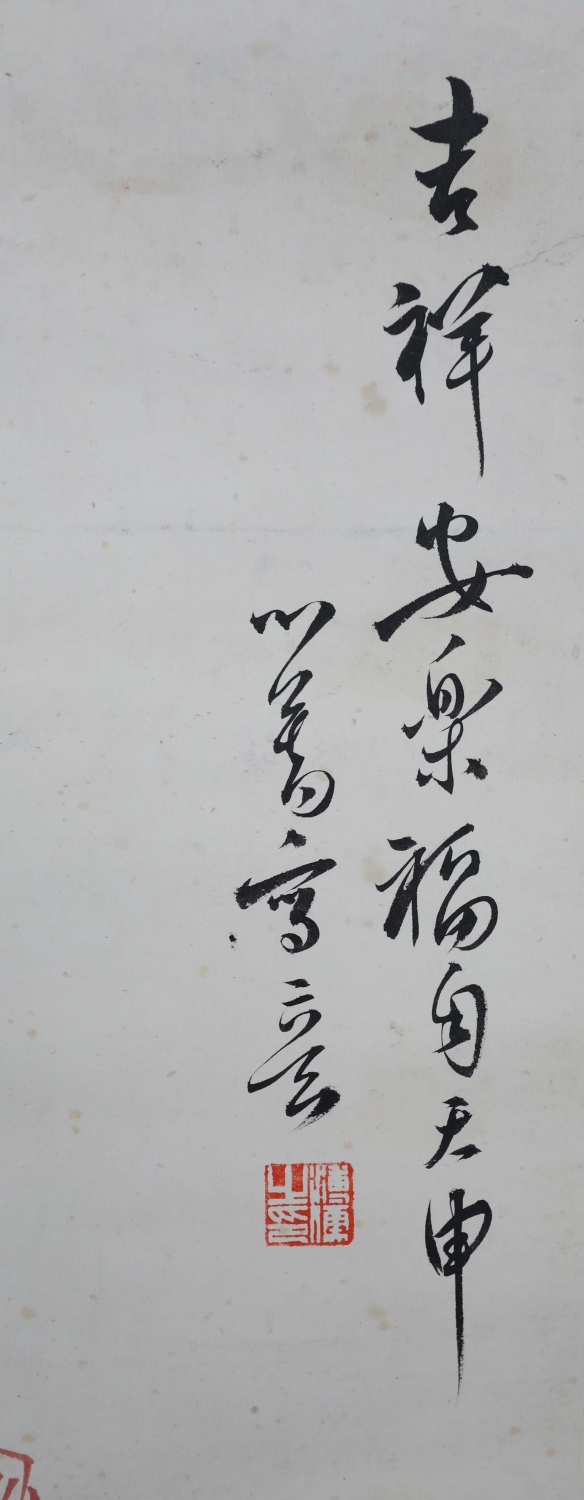 吉祥安樂福自天申
心畬寫意
溥儒之印